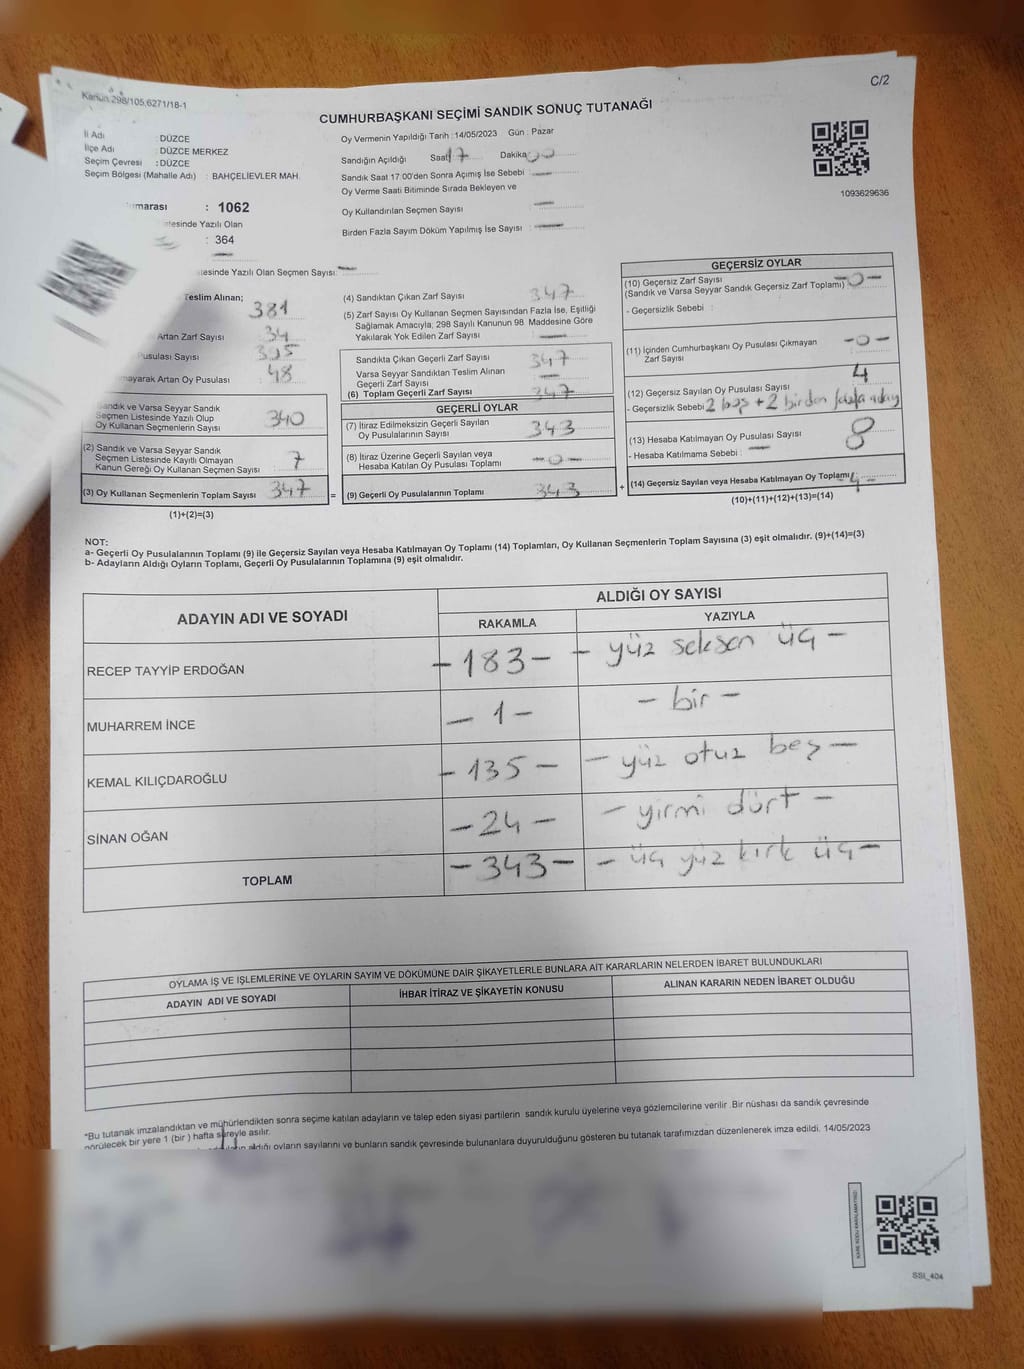 Kanun 298/105,6271/18-1
C/2
CUMHURBAŞKANI SEÇİMİ SANDIK SONUÇ TUTANAĞI
İl Adı : DÜZCE
İlçe Adı : DÜZCE MERKEZ
Seçim Çevresi : DÜZCE
Seçim Bölgesi (Mahalle Adı) : BAHÇELİEVLER MAH.
marası : 1062
tesinde Yazılı Olan
: 364
tesinde Yazılı Olan Seçmen Sayısı:
Oy Vermenin Yapıldığı Tarih : 14/05/2023 Gün : Pazar
Sandığın Açıldığı Saat 17 Dakika 00
Sandık Saat 17:00'den Sonra Açımış İse Sebebi
Oy Verme Saati Bitiminde Sırada Bekleyen ve
Oy Kullandırılan Seçmen Sayısı
Birden Fazla Sayım Döküm Yapılmış İse Sayısı
1093629636
Teslim Alınan; 381
Artan Zarf Sayısı 34
Pusulası Sayısı
mayarak Artan Oy Pusulası : 48
Sandık ve Varsa Seyyar Sandık
Seçmen Listesinde Yazılı Olup
Oy Kullanan Seçmenlerin Sayısı 340
(2) Sandık ve Varsa Seyyar Sandık
Seçmen Listesinde Kayıtlı Olmayan
Kanun Gereği Oy Kullanan Seçmen Sayısı 7
(3) Oy Kullanan Seçmenlerin Toplam Sayısı 347
(1)+(2)=(3)
(4) Sandıktan Çıkan Zarf Sayısı 347
(5) Zarf Sayısı Oy Kullanan Seçmen Sayısından Fazla İse, Eşitliği
Sağlamak Amacıyla, 298 Sayılı Kanunun 98 Maddesine Göre
Yakılarak Yok Edilen Zarf Sayısı
Sandıkta Çıkan Geçerli Zarf Sayısı 347
Varsa Seyyar Sandıktan Teslim Alınan
Geçerli Zarf Sayısı
(6) Toplam Geçerli Zarf Sayısı 347
GEÇERLİ OYLAR
(7) İtiraz Edilmeksizin Geçerli Sayılan
Oy Pusulalarının Sayısı 343
(8) İtiraz Üzerine Geçerli Sayılan veya
Hesaba Katılan Oy Pusulası Toplamı -0-
= (9) Geçerli Oy Pusulalarının Toplamı 343 +
GEÇERSİZ OYLAR
(10) Geçersiz Zarf Sayısı
(Sandık ve Varsa Seyyar Sandık Geçersiz Zarf Toplamı) -0-
- Geçersizlik Sebebi :
(11) İçinden Cumhurbaşkanı Oy Pusulası Çıkmayan
Zarf Sayısı -0-
(12) Geçersiz Sayılan Oy Pusulası Sayısı 4
- Geçersizlik Sebebi 2 boş + 2 birden fazla aday
(13) Hesaba Katılmayan Oy Pusulası Sayısı 8
- Hesaba Katılmama Sebebi :
(14) Geçersiz Sayılan veya Hesaba Katılmayan Oy Toplamı -4-
(10)+(11)+(12)+(13)=(14)
NOT:
a- Geçerli Oy Pusulalarının Toplamı (9) ile Geçersiz Sayılan veya Hesaba Katılmayan Oy Toplamı (14) Toplamları, Oy Kullanan Seçmenlerin Toplam Sayısına (3) eşit olmalıdır. (9)+(14)=(3)
b- Adayların Aldığı Oyların Toplamı, Geçerli Oy Pusulalarının Toplamına (9) eşit olmalıdır.
ADAYIN ADI VE SOYADI
ALDIĞI OY SAYISI
RAKAMLA YAZIYLA
RECEP TAYYİP ERDOĞAN -183- - yüz seksen üç -
MUHARREM İNCE -1- - bir -
KEMAL KILIÇDAROĞLU -135- - yüz otuz beş -
SİNAN OĞAN -24- - yirmi dört -
TOPLAM -343- - üç yüz kırk üç -
OYLAMA İŞ VE İŞLEMLERİNE VE OYLARIN SAYIM VE DÖKÜMÜNE DAİR ŞİKAYETLERLE BUNLARA AİT KARARLARIN NELERDEN İBARET BULUNDUKLARI
ADAYIN ADI VE SOYADI İHBAR İTİRAZ VE ŞİKAYETİN KONUSU ALINAN KARARIN NEDEN İBARET OLDUĞU
*Bu tutanak imzalandıktan ve mühürlendikten sonra seçime katılan adayların ve talep eden siyasi partilerin sandık kurulu üyelerine veya gözlemcilerine verilir. Bir nüshası da sandık çevresinde
görülecek bir yere 1 (bir) hafta süreyle asılır.
aldığı oyların sayılarını ve bunların sandık çevresinde bulunanlara duyurulduğunu gösteren bu tutanak tarafımızdan düzenlenerek imza edildi. 14/05/2023
KARE KODU KARALAMAYINIZ!
SSI_404